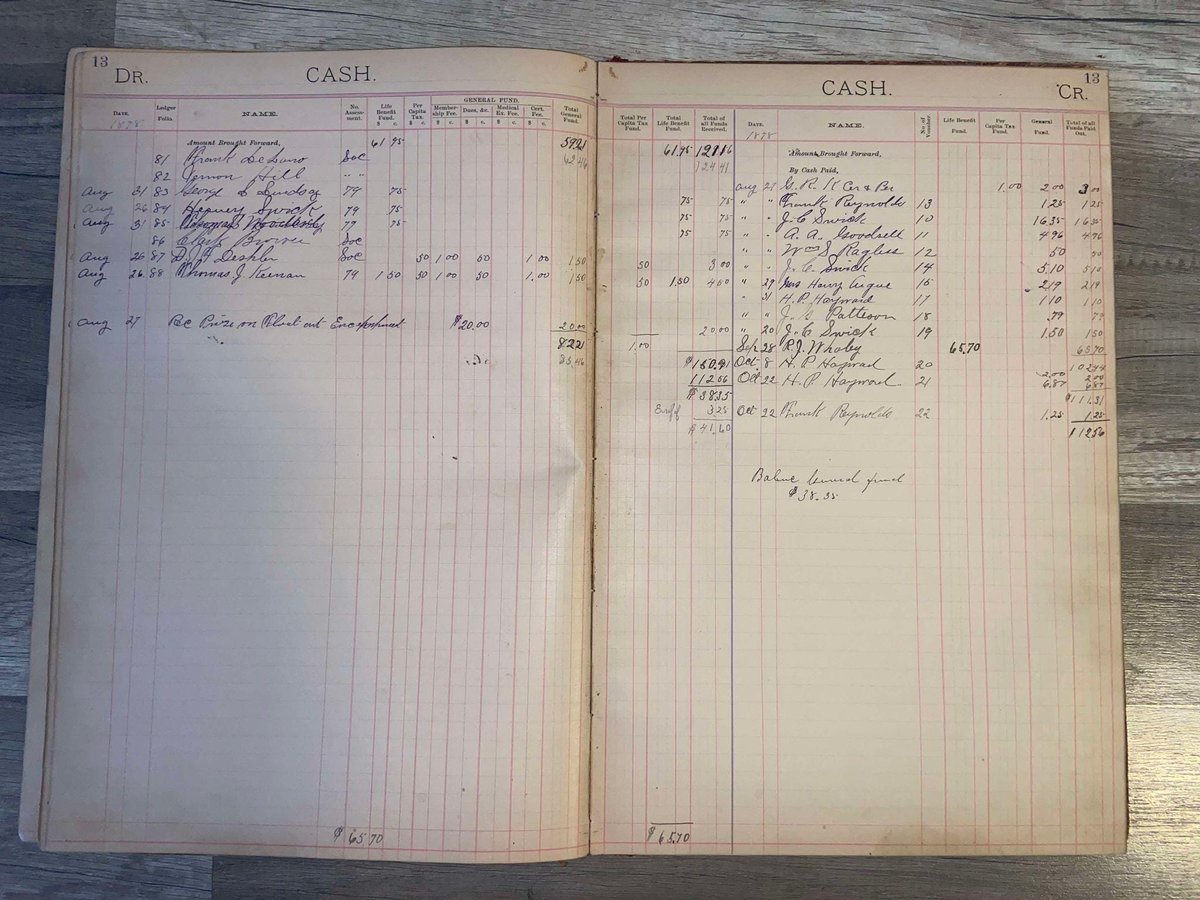 13
DR. CASH.
GENERAL FUND.
DATE. Ledger Folio. NAME. No. Assessment. Life Benefit Fund. Per Capita Tax. Membership Fee. Dues, &c. Medical Ex. Fee. Cert. Fee. Total General Fund.
$ c. $ c. $ c. $ c. $ c. $ c.
1898
Amount Brought Forward, 61 95 5921
81 Frank DeLano Soc
82 Vernon Hill " "
Aug 31 83 George S Lindsay 79 75
Aug 26 84 Swick 79 75
Aug 31 85 79 75
86 Clark Brown Soc
Aug 26 87 D. Deshler Soc 50 1 00 50 1 00 1.50
Aug 26 88 Thomas J. Keenan 79 1 50 50 1 00 50 1.00 1 50
Aug 27 Rec Prize on Float out Encampment $20.00 20.00
8221
$ 65 70
13
CASH. CR.
Total Per Capita Tax Fund. Total Life Benefit Fund. Total of all Funds Received. DATE. NAME. No. of Voucher. Life Benefit Fund. Per Capita Tax Fund. General Fund. Total of all Funds Paid Out.
1898
61 95 12116 Amount Brought Forward,
124 41 By Cash Paid,
Aug 27 G. R. K & Per 1.00 2 00 3 00
75 75 " " Frank Reynolds 13 1.25 1 25
75 75 " " J. C Swick 10 16 35 16 35
75 75 " " A. A. Goodsell 11 4 96 4 96
" " Wm S Ragless 12 50 50
50 3 00 " " J. C. Swick 14 5.10 5 10
50 1.50 4 00 " 29 Harry 15 2 19 2 19
" 31 H. P. Hayward 17 1 10 1 10
" " J. Pattison 18 79 79
20 00 " 20 J. C Swick 19 1.50 1 50
1.00 Sep 28 R. J. Whaley 65.70 65 70
$ 150.91 Oct 8 H. P Hayward 20 2.00 2 00
112 56 Oct 22 H. P Hayward 21 6.87 6 87
$ 38 35 $ 111.31
3 25 Oct 22 Frank Reynolds 22 1.25 1.25
$ 41.60 112 56
Balance General fund
$ 38.35
$ 65.70